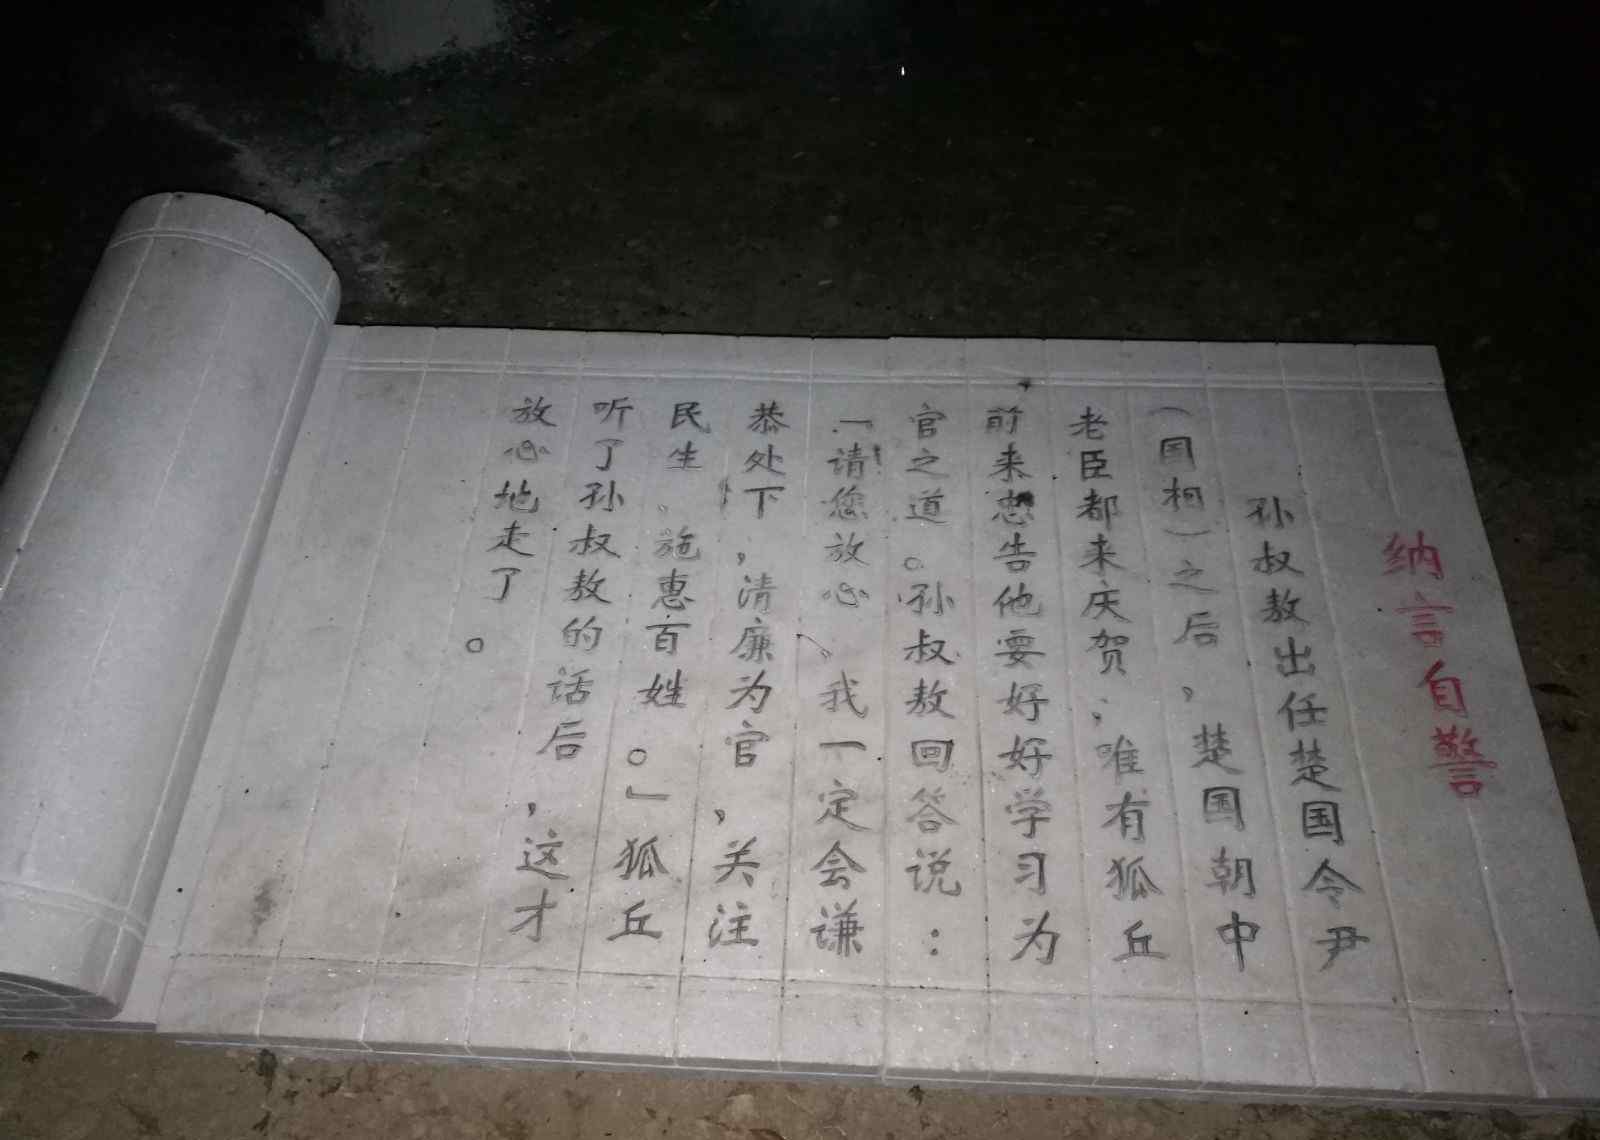 纳言自警
孙叔敖出任楚国令尹
（国相）之后，楚国朝中
老臣都来庆贺；唯有狐丘
前来忠告他要好好学习为
官之道。孙叔敖回答说：
「请您放心、我一定会谦
恭处下，清廉为官，关注
民生、施惠百姓。」狐丘
听了孙叔敖的话后，这才
放心地走了。